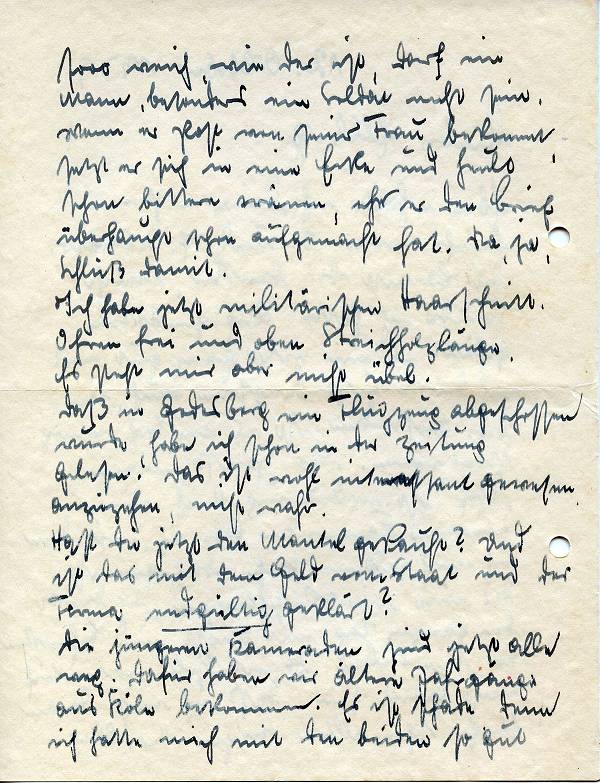 sooo weich, wie der ist, darf ein
Mann, besonders ein Soldat nicht sein.
wenn er Post von seiner Frau bekommt,
setzt er sich in eine Ecke und heult
schon bittere Tränen, ehe er den Brief
überhaupt schon aufgemacht hat. Na, ja,
Schluß damit.
Ich habe jetzt militärischen Haarschnitt.
Ohren frei und oben Streichholzlänge.
Es steht mir aber nicht übel.
daß in Godesberg ein Flugzeug abgeschossen
wurde, habe ich schon in der Zeitung
gelesen. das ist wohl interessant gewesen
anzusehen, nicht wahr.
Hast du jetzt den Mantel gekauft? Und
ist das mit dem Geld vom Staat und der
Firma endgültig geklärt?
die jüngeren Kameraden sind jetzt alle
weg. dafür haben wir ältere Jahrgänge
aus Köln bekommen. Es ist schade denn
ich hatte mich mit den beiden so gut